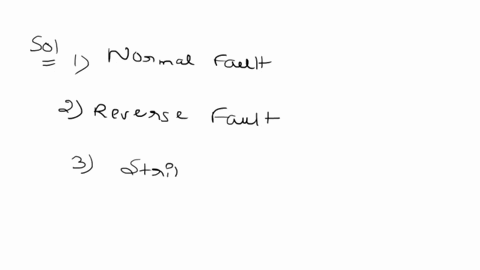 Sol
1) Normal Fault
2) Reverse Fault
3) Stri